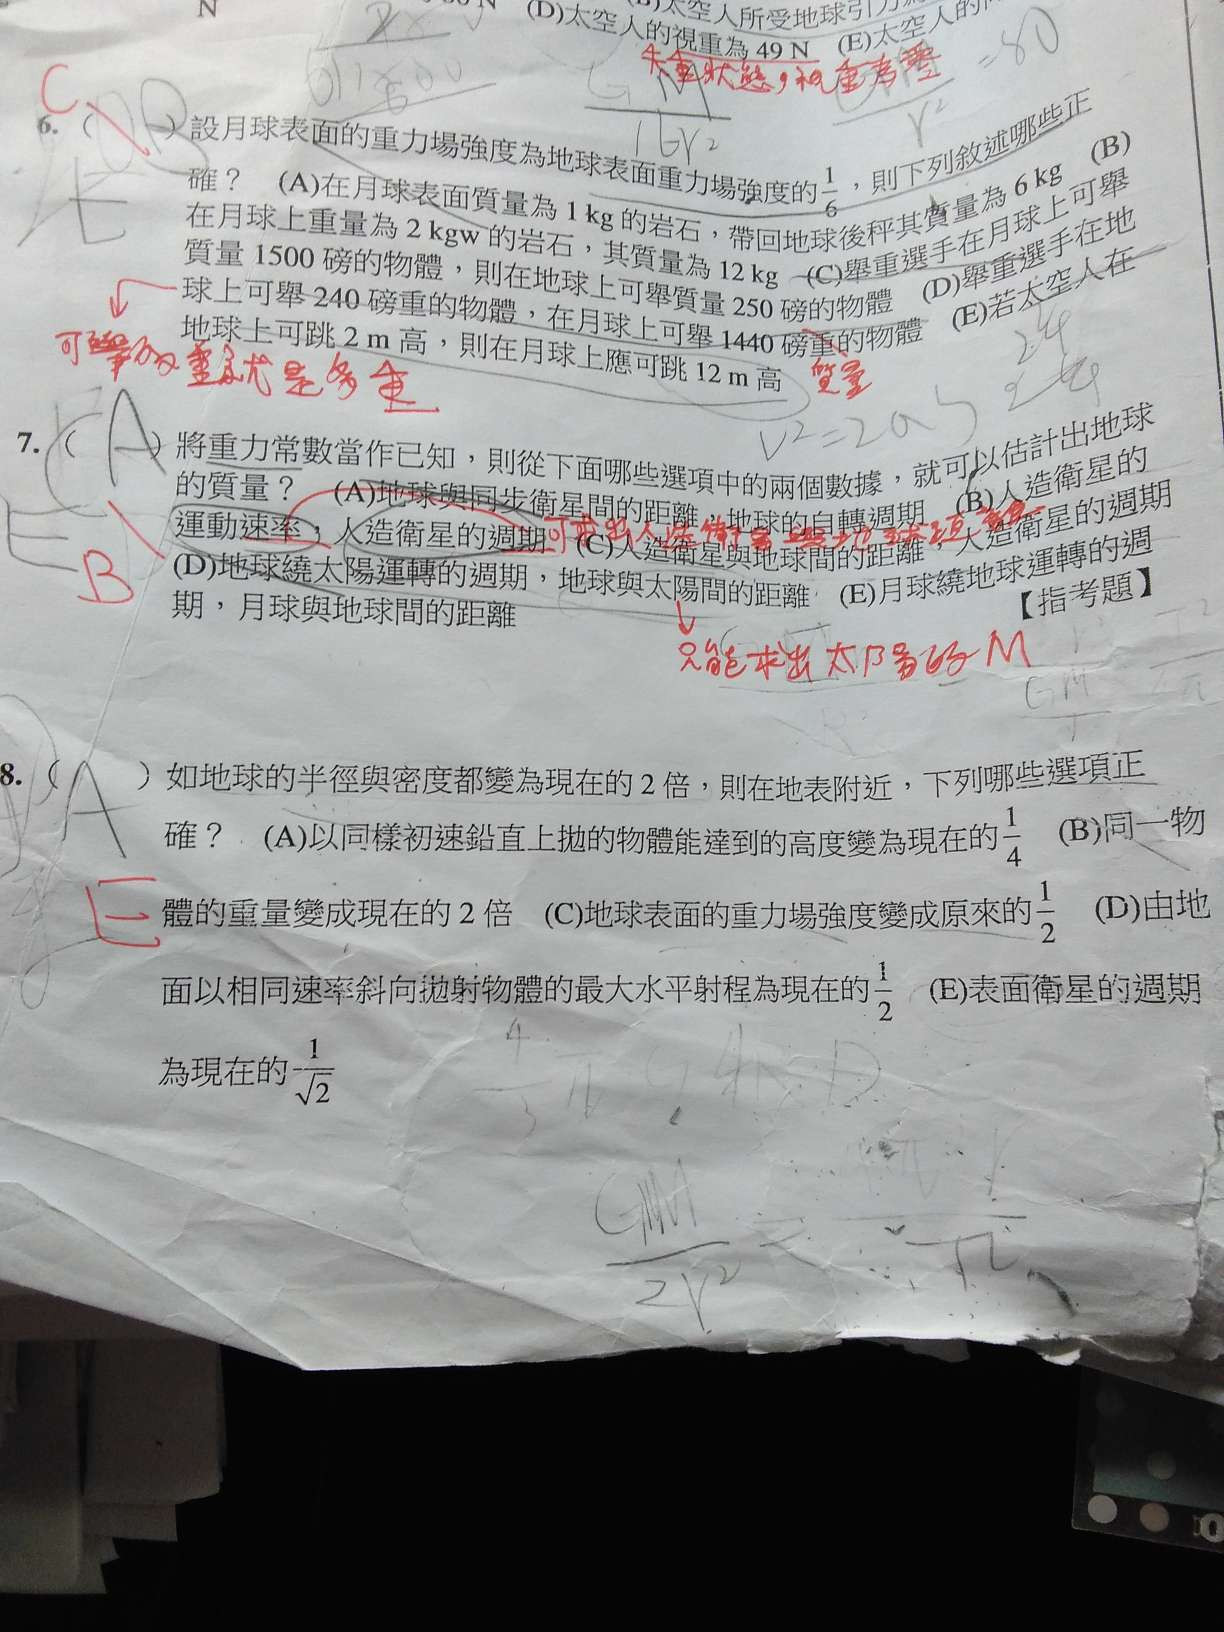 N
(D)太空人的視重為 49 N (E)太空人的
失重狀態，視重為零
C
6. ( ) 設月球表面的重力場強度為地球表面重力場強度的 1/6，則下列敘述哪些正
確？ (A)在月球表面質量為 1 kg 的岩石，帶回地球後秤其質量為 6 kg (B)
在月球上重量為 2 kgw 的岩石，其質量為 12 kg (C)舉重選手在月球上可舉
質量 1500 磅的物體，則在地球上可舉質量 250 磅的物體 (D)舉重選手在地
球上可舉 240 磅重的物體，在月球上可舉 1440 磅重的物體 (E)若太空人在
地球上可跳 2 m 高，則在月球上應可跳 12 m 高
質量
24
V²=2a
7. ( A ) 將重力常數當作已知，則從下面哪些選項中的兩個數據，就可以估計出地球
的質量？ (A)地球與同步衛星間的距離，地球的自轉週期 (B)人造衛星的
運動速率，人造衛星的週期 (C)人造衛星與地球間的距離，人造衛星的週期
(D)地球繞太陽運轉的週期，地球與太陽間的距離 (E)月球繞地球運轉的週
期，月球與地球間的距離 【指考題】
E
B
只能求出太陽的M
GM
8. ( A ) 如地球的半徑與密度都變為現在的 2 倍，則在地表附近，下列哪些選項正
確？ (A)以同樣初速鉛直上拋的物體能達到的高度變為現在的 1/4 (B)同一物
E
體的重量變成現在的 2 倍 (C)地球表面的重力場強度變成原來的 1/2 (D)由地
面以相同速率斜向拋射物體的最大水平射程為現在的 1/2 (E)表面衛星的週期
為現在的 1/√2
GM/2r² =